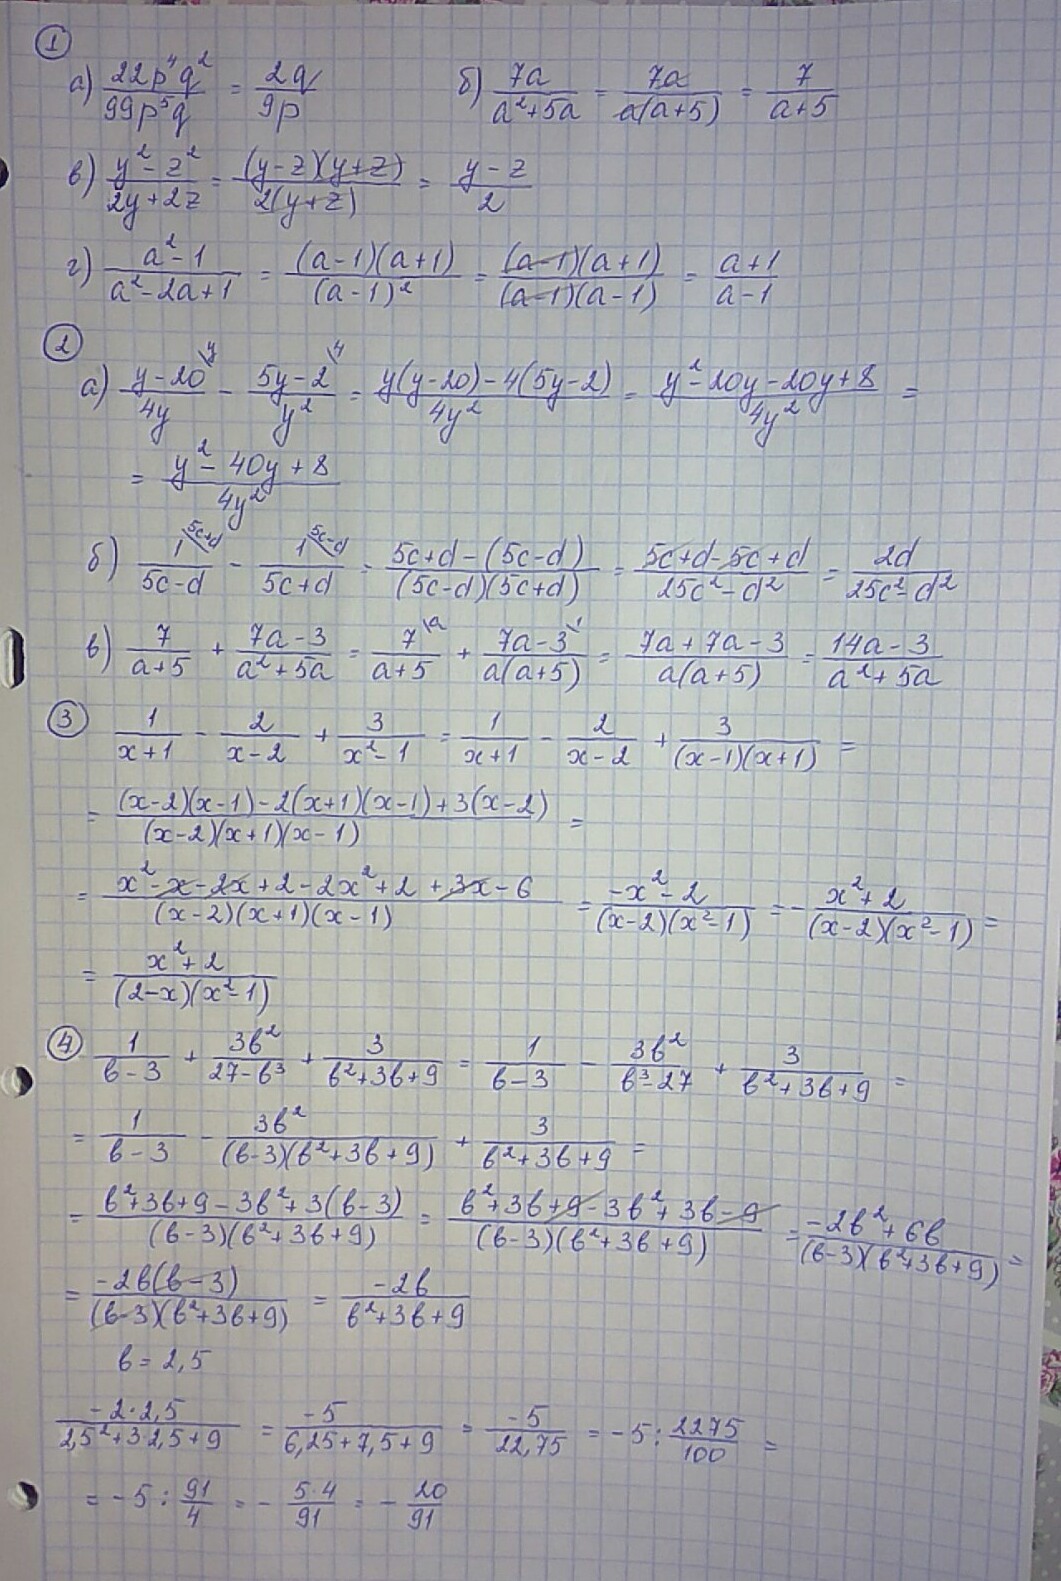 ①
а) 22p⁴q² / 99p⁵q = 2q / 9p   б) 7a / a²+5a = 7a / a(a+5) = 7 / a+5
в) y²-z² / 2y+2z = (y-z)(y+z) / 2(y+z) = y-z / 2
г) a²-1 / a²-2a+1 = (a-1)(a+1) / (a-1)² = (a-1)(a+1) / (a-1)(a-1) = a+1 / a-1
②
а) y-20 \y / 4y - 5y-2 \4 / y² = y(y-20)-4(5y-2) / 4y² = y²-20y-20y+8 / 4y² =
= y²-40y+8 / 4y²
б) 1 \5c+d / 5c-d - 1 \5c-d / 5c+d = 5c+d-(5c-d) / (5c-d)(5c+d) = 5c+d-5c+d / 25c²-d² = 2d / 25c²-d²
в) 7 / a+5 + 7a-3 / a²+5a = 7 \a / a+5 + 7a-3 \1 / a(a+5) = 7a+7a-3 / a(a+5) = 14a-3 / a²+5a
③ 1 / x+1 - 2 / x-2 + 3 / x²-1 = 1 / x+1 - 2 / x-2 + 3 / (x-1)(x+1) =
= (x-2)(x-1)-2(x+1)(x-1)+3(x-2) / (x-2)(x+1)(x-1) =
= x²-x-2x+2-2x²+2+3x-6 / (x-2)(x+1)(x-1) = -x²-2 / (x-2)(x²-1) = - x²+2 / (x-2)(x²-1) =
= x²+2 / (2-x)(x²-1)
④ 1 / в-3 + 3в² / 27-в³ + 3 / в²+3в+9 = 1 / в-3 - 3в² / в³-27 + 3 / в²+3в+9 =
= 1 / в-3 - 3в² / (в-3)(в²+3в+9) + 3 / в²+3в+9 =
= в²+3в+9-3в²+3(в-3) / (в-3)(в²+3в+9) = в²+3в+9-3в²+3в-9 / (в-3)(в²+3в+9) = -2в²+6в / (в-3)(в²+3в+9) =
= -2в(в-3) / (в-3)(в²+3в+9) = -2в / в²+3в+9
в = 2,5
-2·2,5 / 2,5²+3·2,5+9 = -5 / 6,25+7,5+9 = -5 / 22,75 = -5 : 2275 / 100 =
= -5 : 91 / 4 = - 5·4 / 91 = - 20 / 91